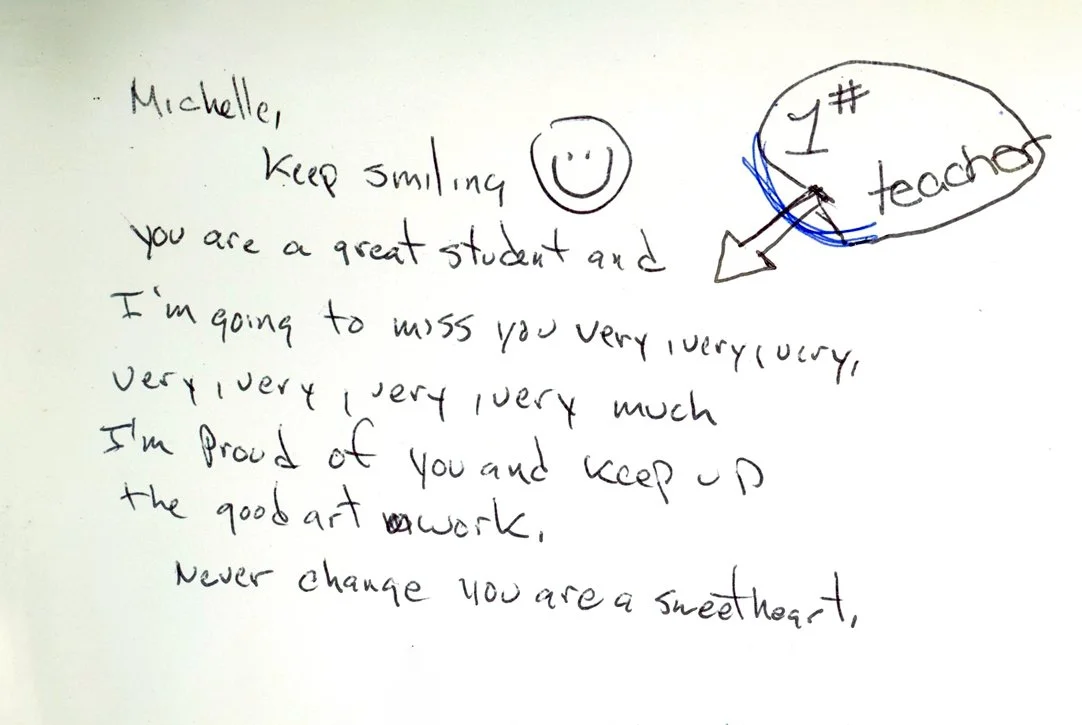 Michelle,
Keep smiling
1#
teacher
you are a great student and
I'm going to miss you very, very, very,
very, very, very, very much
I'm Proud of you and keep up
the good art work.
Never change you are a sweetheart.